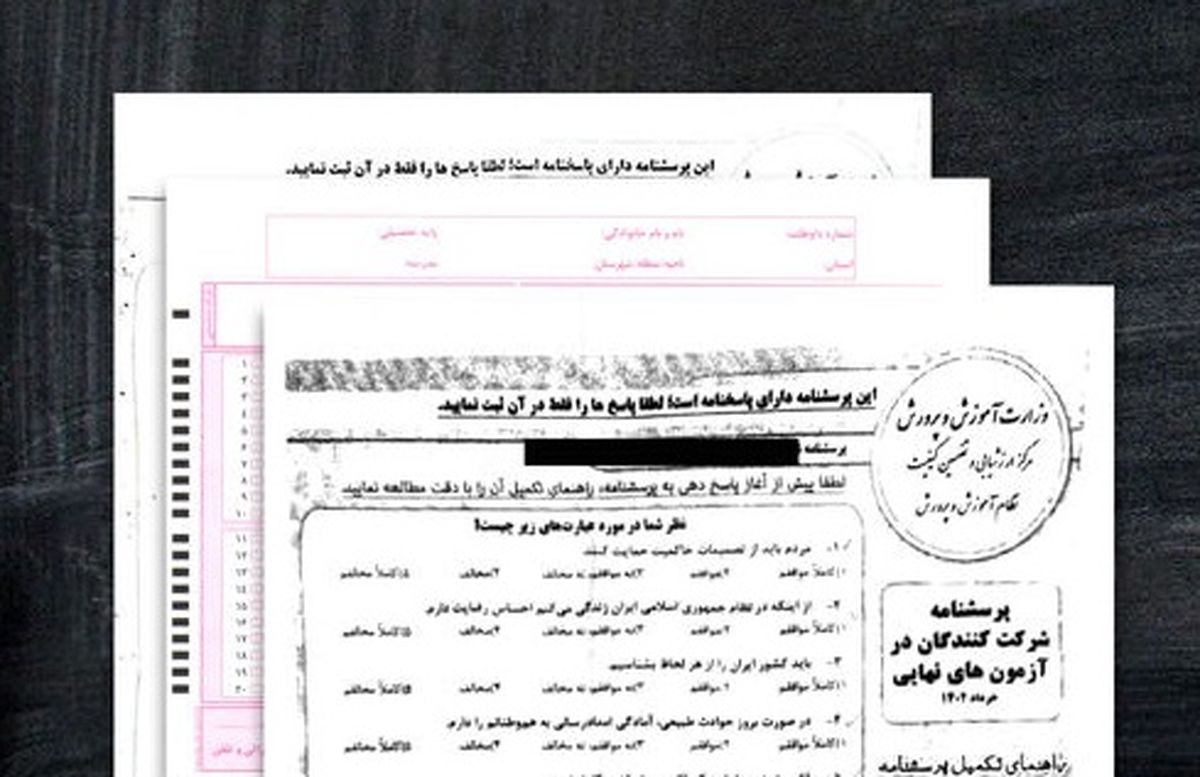 این پرسشنامه دارای پاسخنامه است؛ لطفا پاسخ ها را فقط در آن ثبت نمایید.
شماره داوطلب:
نام و نام خانوادگی:
پایه تحصیلی:
استان:
ناحیه/منطقه/شهرستان:
مدرسه:
۱
۲
۳
۴
۵
۶
۷
۸
۹
۱۰
۱۱
۱۲
۱۳
۱۴
۱۵
۱۶
۱۷
۱۸
۱۹
۲۰
این پرسشنامه دارای پاسخنامه است؛ لطفا پاسخ ها را فقط در آن ثبت نمایید.
پرسشنامه
لطفا پیش از آغاز پاسخ دهی به پرسشنامه، راهنمای تکمیل آن را با دقت مطالعه نمایید.
وزارت آموزش و پرورش
مرکز ارزشیابی و تضمین کیفیت
نظام آموزش و پرورش
پرسشنامه
شرکت کنندگان در
آزمون های نهایی
خرداد ۱۴۰۲
راهنمای تکمیل پرسشنامه
نظر شما در مورد عبارت‌های زیر چیست؟
۱- مردم باید از تصمیمات حاکمیت حمایت کنند.
۱)کاملاً موافقم ۲)موافقم ۳)نه موافقم، نه مخالف ۴)مخالفم ۵)کاملاً مخالفم
۲- از اینکه در نظام جمهوری اسلامی ایران زندگی می‌کنم احساس رضایت دارم.
۱)کاملاً موافقم ۲)موافقم ۳)نه موافقم، نه مخالف ۴)مخالفم ۵)کاملاً مخالفم
۳- باید کشور ایران را از هر لحاظ بشناسیم.
۱)کاملاً موافقم ۲)موافقم ۳)نه موافقم، نه مخالف ۴)مخالفم ۵)کاملاً مخالفم
۴- در صورت بروز حوادث طبیعی، آمادگی امدادرسانی به هم‌وطنانم را دارم.
۱)کاملاً موافقم ۲)موافقم ۳)نه موافقم، نه مخالف ۴)مخالفم ۵)کاملاً مخالفم